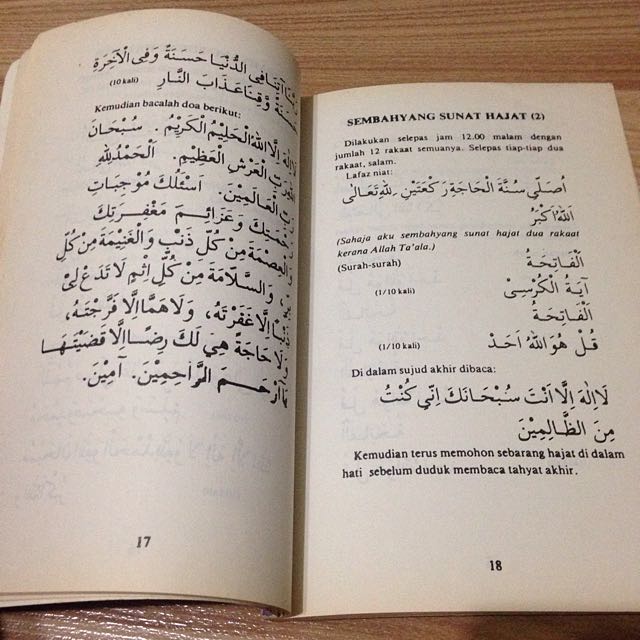 رَبَّنَا آتِنَا فِي الدُّنْيَا حَسَنَةً وَفِي الْآخِرَةِ
حَسَنَةً وَقِنَا عَذَابَ النَّارِ. (10 kali)
Kemudian bacalah doa berikut:
لَا إِلٰهَ إِلَّا اللهُ الْحَلِيْمُ الْكَرِيْمُ. سُبْحَانَ
اللهِ رَبِّ الْعَرْشِ الْعَظِيْمِ. اَلْحَمْدُ لِلّٰهِ
رَبِّ الْعَالَمِيْنَ. اَسْئَلُكَ مُوْجِبَاتِ
رَحْمَتِكَ وَعَزَائِمَ مَغْفِرَتِكَ
وَالْعِصْمَةَ مِنْ كُلِّ ذَنْبٍ وَالْغَنِيْمَةَ مِنْ كُلِّ
بِرٍّ، وَالسَّلَامَةَ مِنْ كُلِّ اِثْمٍ لَا تَدَعْ لِيْ
ذَنْبًا اِلَّا غَفَرْتَهُ، وَلَا هَمًّا اِلَّا فَرَّجْتَهُ،
وَلَا حَاجَةً هِيَ لَكَ رِضًا اِلَّا قَضَيْتَهَا
يَا اَرْحَمَ الرَّاحِمِيْنَ. آمِيْنَ.
17
SEMBAHYANG SUNAT HAJAT (2)
Dilakukan selepas jam 12.00 malam dengan
jumlah 12 rakaat semuanya. Selepas tiap-tiap dua
rakaat, salam.
Lafaz niat:
اُصَلِّي سُنَّةَ الْحَاجَةِ رَكْعَتَيْنِ لِلّٰهِ تَعَالٰى
اَللهُ اَكْبَرُ
(Sahaja aku sembahyang sunat hajat dua rakaat
kerana Allah Ta'ala.)
(Surah-surah) اَلْفَاتِحَةُ
(1/10 kali) آيَةُ الْكُرْسِيْ
اَلْفَاتِحَةُ
(1/10 kali) قُلْ هُوَ اللهُ اَحَدْ
Di dalam sujud akhir dibaca:
لَا اِلٰهَ اِلَّا اَنْتَ سُبْحَانَكَ اِنِّي كُنْتُ
مِنَ الظَّالِمِيْنَ
Kemudian terus memohon sebarang hajat di dalam
hati sebelum duduk membaca tahyat akhir.
18